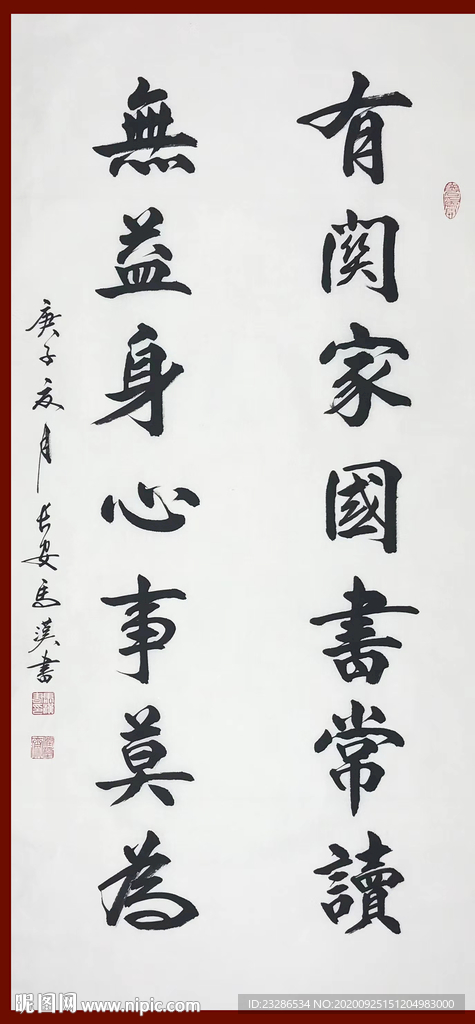 有関家國書常讀
無益身心事莫為
庚子夏月長安馬漢書
昵图网 www.nipic.com
ID:23286534 NO:20200925151204983000